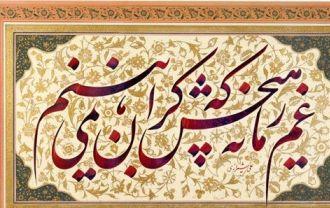 غم زمانه که هیچش کران نمی بینم